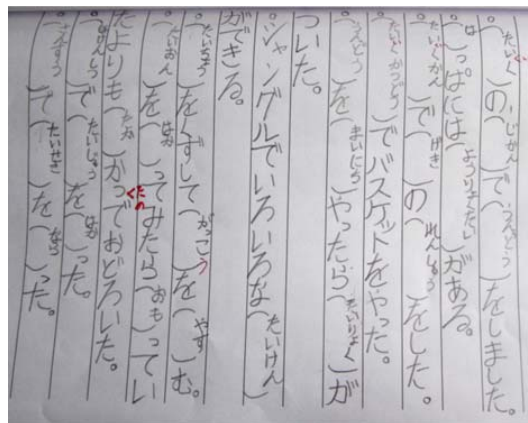 。(たいいく)の(じかん)で(うんどう)をしました。
。(は)っぱには(ようりょくたい)がある。
。(たいいくかん)で(げき)の(れんしゅう)をした。
。(たいいくかつどう)でバスケットをやった。
。(うんどう)を(まいにち)やったら(たいりょく)が
ついた。
。ジャングルでいろいろな(たいけん)
ができる。
。(たいちょう)をくずして(がっこう)を(やす)む。
。(たいおん)を(はか)ってみたら(おも)ってい
たよりも(たか)くたのかってておどろいた。
。(ほけんしつ)で(たいじゅう)を(はか)った。
。(さんすう)で(たいせき)を(なら)った。